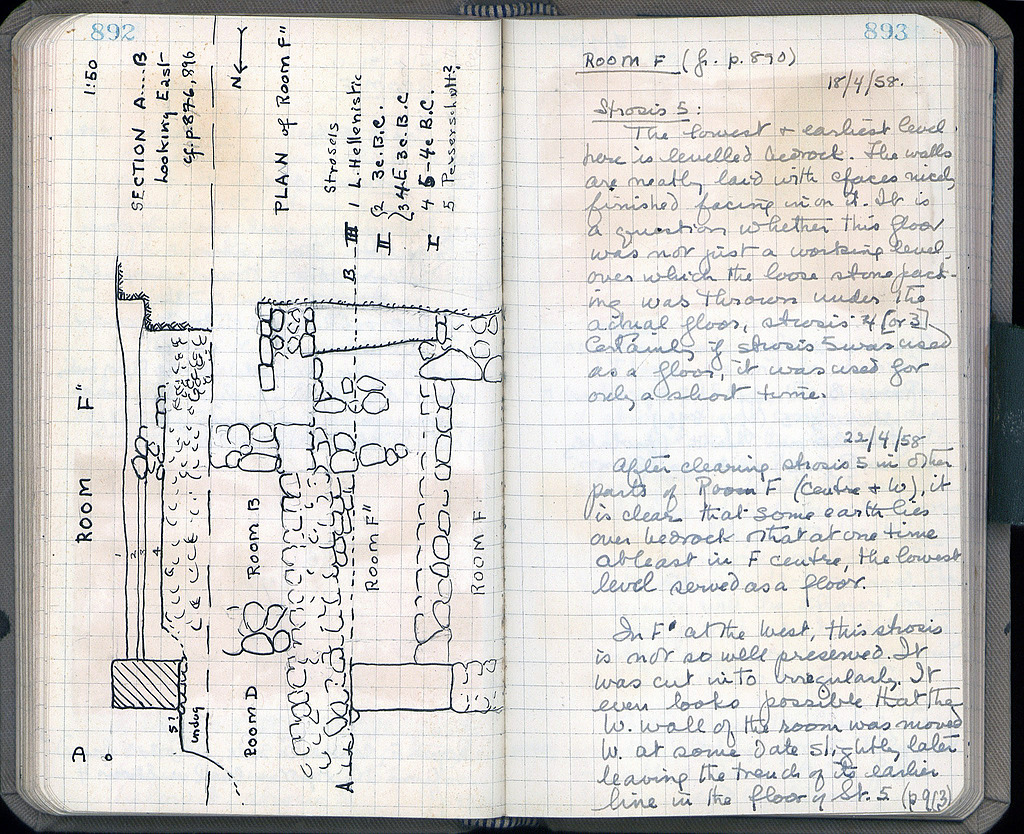 892
1:50
SECTION A....B
Looking East
cf. p. 876, 896
N
PLAN of Room F"
Strosels
III 1 L. Hellenistic
II 2 3c. B.C.
3 4/E. 3c. B.C
I 4 5-4c B.C.
5 Perserschutt?
ROOM F"
1
2
3
4
5?
undug
D
0
ROOM D
ROOM B
ROOM F"
ROOM F
A
B
893
ROOM F (fr. p. 890)
18/4/58.
Strosis 5:
The lowest + earliest level
here is levelled bedrock. The walls
are neatly laid with faces nicely
finished facing in on it. It is
a question whether this floor
was not just a working level
over which the loose stone pack-
ing was thrown under the
actual floor, strosis 4 [or 3]
Certainly if strosis 5 was used
as a floor, it was used for
only a short time.
22/4/58
After clearing strosis 5 in other
parts of Room F (Centre + W), it
is clear that some earth lies
over bedrock + that at one time
at least in F centre, the lowest
level served as a floor.
In F" at the West, this strosis
is not so well preserved. It
was cut into irregularly. It
even looks possible that the
W. wall of the room was moved
W. at some date slightly later
leaving the trench of its earlier
line in the floor of St. 5 (p 913)